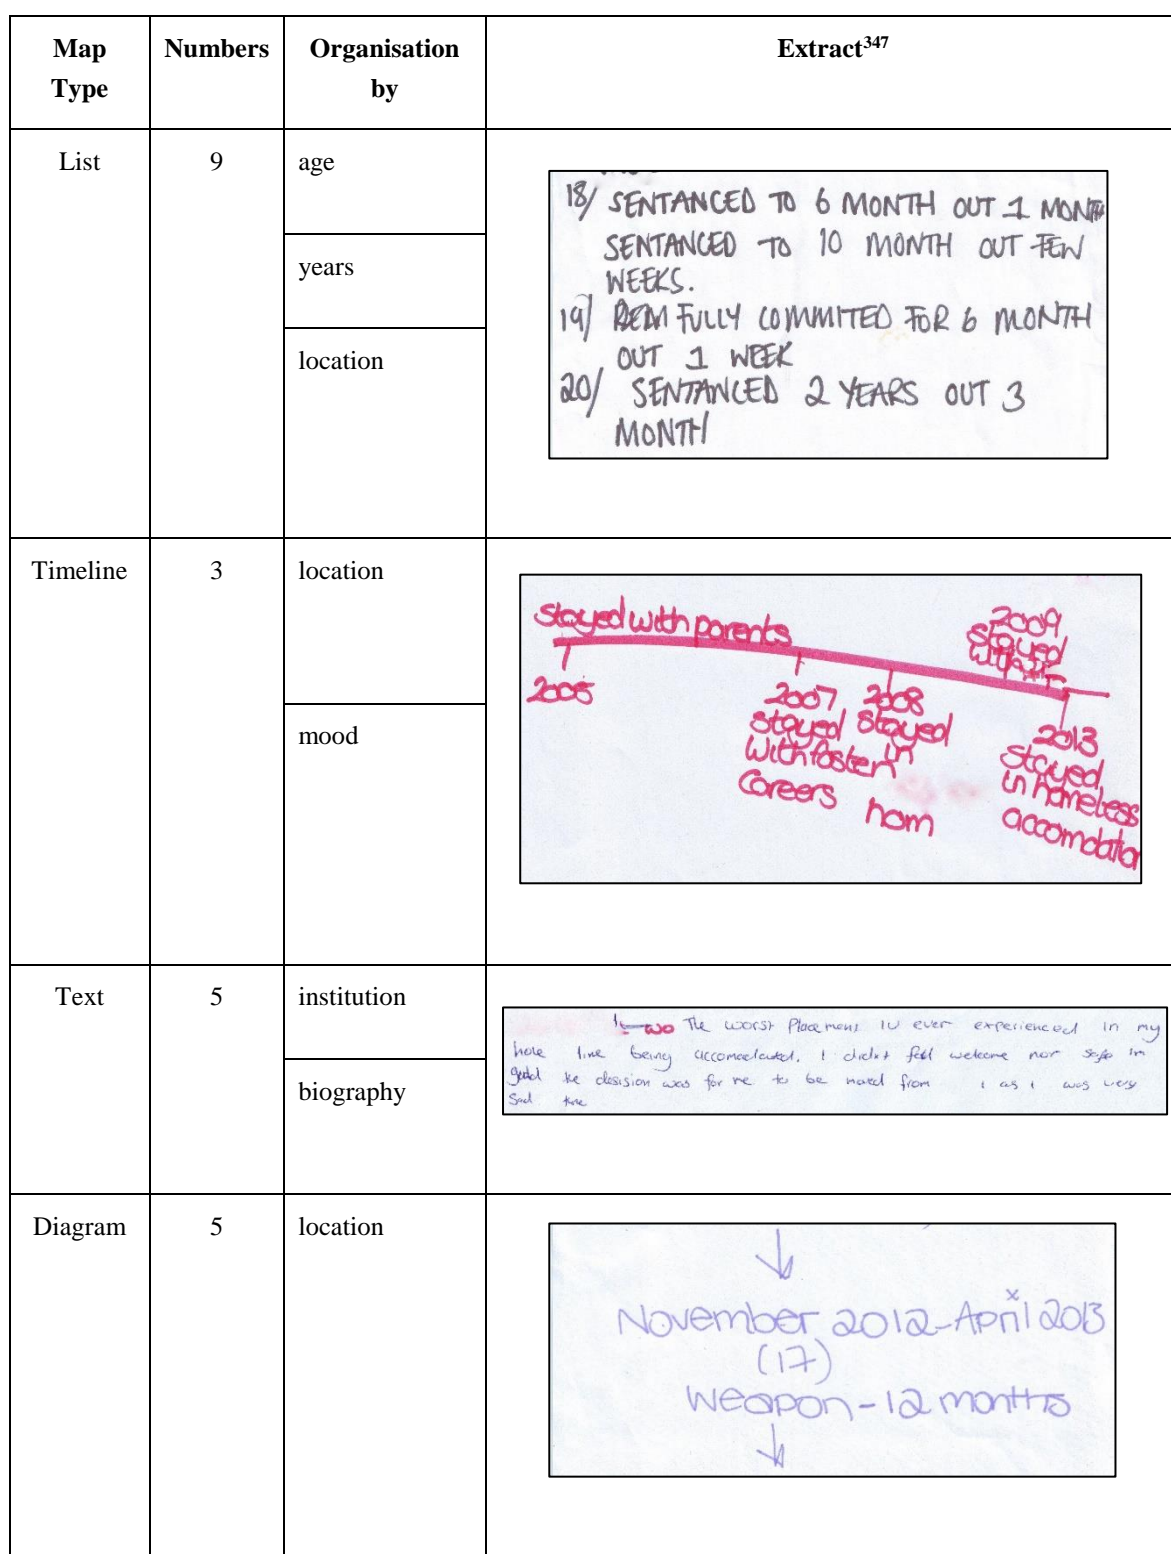 Map Type
Numbers
Organisation by
Extract347
List
9
age
years
location
18/ SENTANCED TO 6 MONTH OUT 1 MONTH
SENTANCED TO 10 MONTH OUT FEW
WEEKS.
19/ REM FULLY COMMITED FOR 6 MONTH
OUT 1 WEEK
20/ SENTANCED 2 YEARS OUT 3
MONTH
Timeline
3
location
mood
Stayed with parents
2009
Stayed
with
2005
2007
stayed
with foster
Careers
2008
stayed
in
hom
2013
Stayed
in homeless
accomdation
Text
5
institution
biography
The worst Placement iv ever experienced in my
hole time being accomodated. I didnt feel welcome nor safe im
glad the desision was for me to be moved from as i was very
Sad there
Diagram
5
location
November 2012-April 2013
(17)
Weapon-12 months